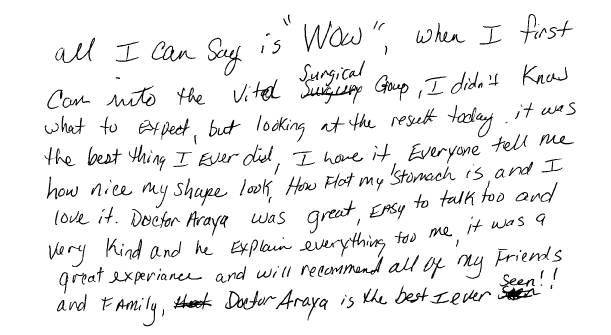 all I can Say is "Wow", when I first
Cam into the Vital Surgical Group, I didn't Know
what to Expect, but looking at the result today. it was
the best thing I Ever did, I love it, Everyone tell me
how nice my shape look, How Flat my Stomach is and I
love it. Doctor Araya was great, EASy to talk too and
very Kind and he Explain everything too me, it was a
great experiance and will recommend all of my Friends
and FAmily, Doctor Araya is the best I ever seen!!